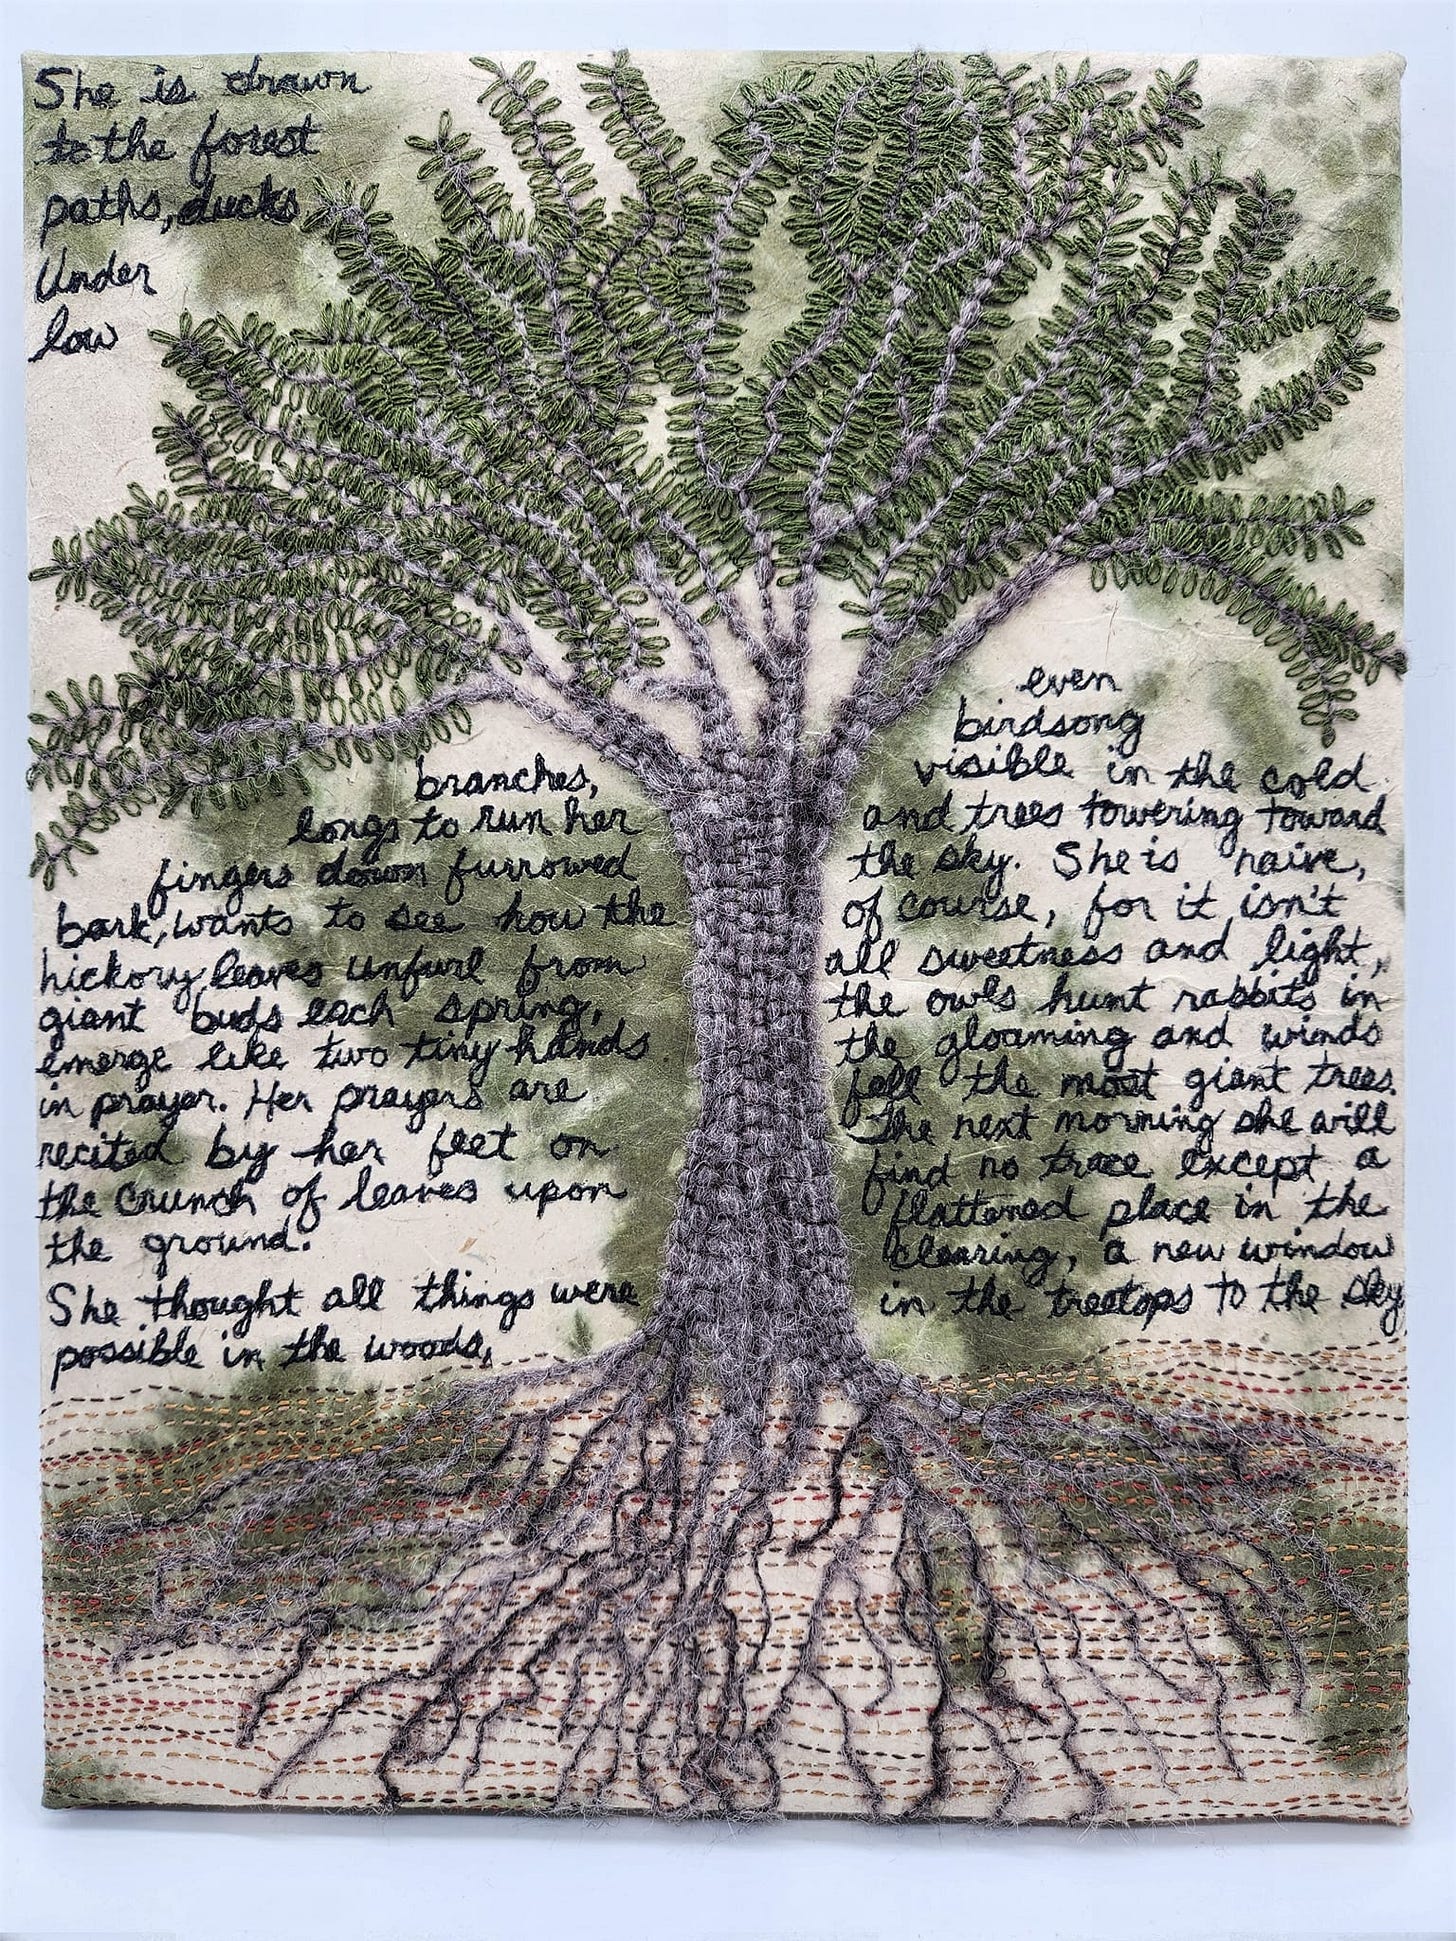 She is drawn
to the forest
paths, ducks
Under
low
branches,
longs to run her
fingers down furrowed
bark, wants to see how the
hickory leaves unfurl from
giant buds each spring,
emerge like two tiny hands
in prayer. Her prayers are
recited by her feet on
the crunch of leaves upon
the ground.
She thought all things were
possible in the woods,
even
birdsong
visible in the cold
and trees towering toward
the sky. She is naive,
of course, for it isn't
all sweetness and light,
the owls hunt rabbits in
the gloaming and winds
fell the most giant trees.
The next morning she will
find no trace except a
flattened place in the
clearing, a new window
in the treetops to the sky